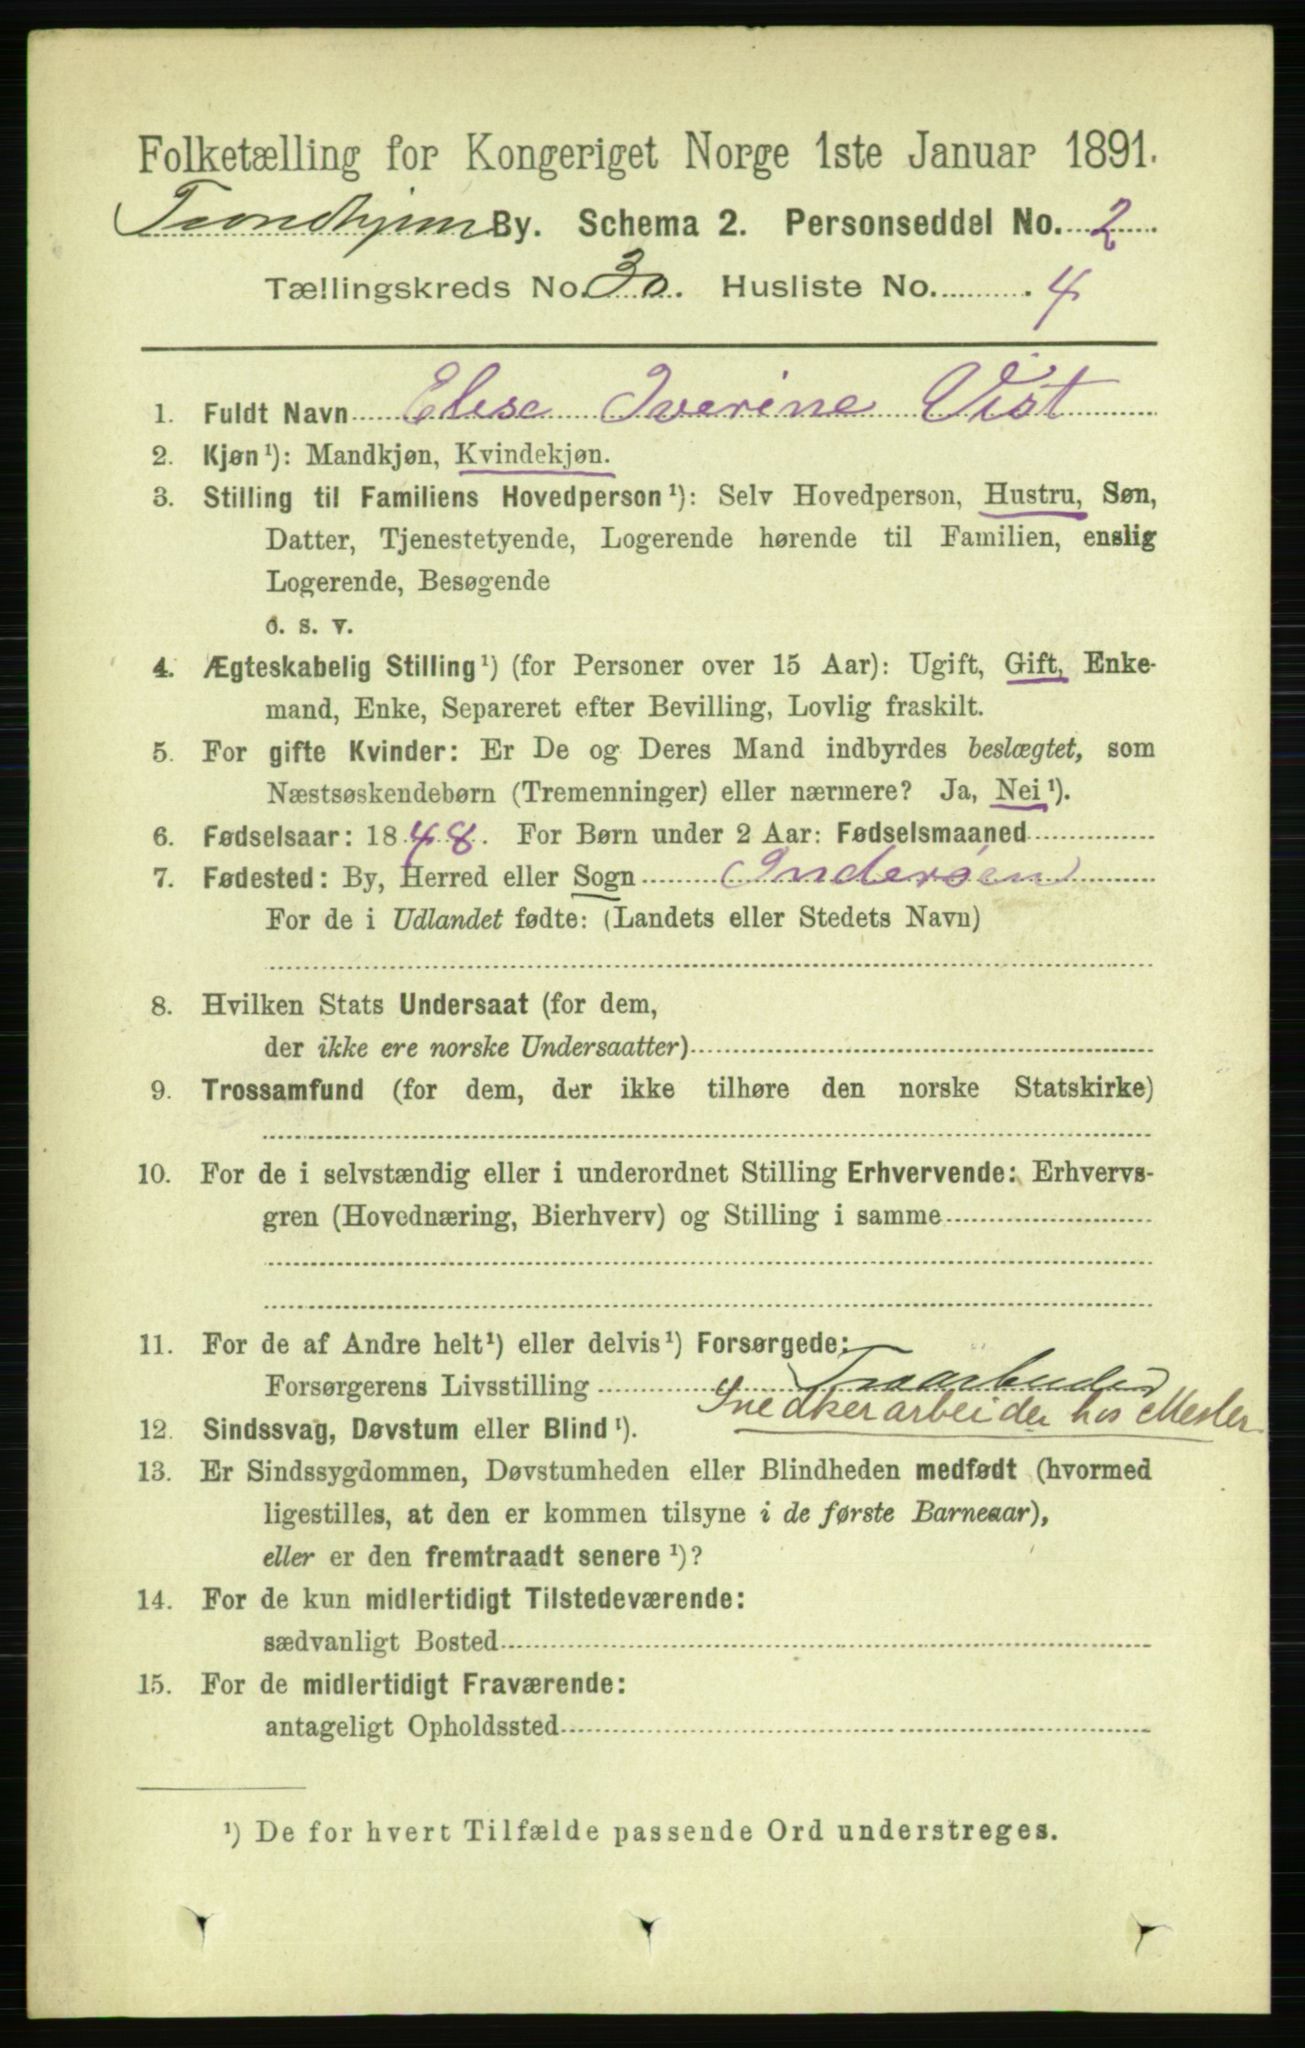 Folketælling for Kongeriget Norge 1ste Januar 1891.
Trondhjem By. Schema 2. Personseddel No. 2
Tællingskreds No. 30. Husliste No. 4
1. Fuldt Navn Elise Iverine Vist
2. Kjøn¹): Mandkjøn, Kvindekjøn.
3. Stilling til Familiens Hovedperson¹): Selv Hovedperson, Hustru, Søn,
Datter, Tjenestetyende, Logerende hørende til Familien, enslig
Logerende, Besøgende
o. s. v.
4. Ægteskabelig Stilling¹) (for Personer over 15 Aar): Ugift, Gift, Enke-
mand, Enke, Separeret efter Bevilling, Lovlig fraskilt.
5. For gifte Kvinder: Er De og Deres Mand indbyrdes beslægtet, som
Næstsøskendebørn (Tremenninger) eller nærmere? Ja, Nei¹).
6. Fødselsaar: 1848. For Børn under 2 Aar: Fødselsmaaned
7. Fødested: By, Herred eller Sogn Inderøen
For de i Udlandet fødte: (Landets eller Stedets Navn)
8. Hvilken Stats Undersaat (for dem,
der ikke ere norske Undersaatter)
9. Trossamfund (for dem, der ikke tilhøre den norske Statskirke)
10. For de i selvstændig eller i underordnet Stilling Erhvervende: Erhvervs-
gren (Hovednæring, Bierhverv) og Stilling i samme
11. For de af Andre helt¹) eller delvis¹) Forsørgede:
Forsørgerens Livsstilling Træarbeider
Snedkerarbeider hos Mester
12. Sindssvag, Døvstum eller Blind¹).
13. Er Sindssygdommen, Døvstumheden eller Blindheden medfødt (hvormed
ligestilles, at den er kommen tilsyne i de første Barneaar),
eller er den fremtraadt senere¹)?
14. For de kun midlertidigt Tilstedeværende:
sædvanligt Bosted
15. For de midlertidigt Fraværende:
antageligt Opholdssted
¹) De for hvert Tilfælde passende Ord understreges.